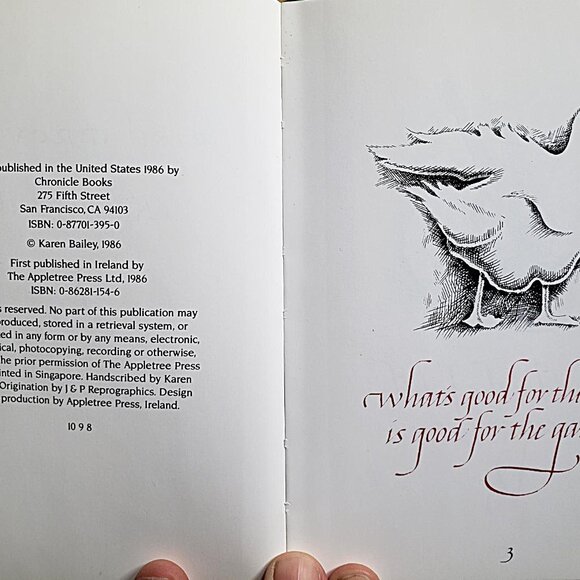 published in the United States 1986 by
Chronicle Books
275 Fifth Street
San Francisco, CA 94103
ISBN: 0-87701-395-0
© Karen Bailey, 1986
First published in Ireland by
The Appletree Press Ltd, 1986
ISBN: 0-86281-154-6
reserved. No part of this publication may
stored in a retrieval system, or
in any form or by any means, electronic,
photocopying, recording or otherwise,
the prior permission of The Appletree Press
in Singapore. Handscribed by Karen
Origination by J & P Reprographics. Design
production by Appletree Press, Ireland.
10 9 8
What's good for the
is good for the
3